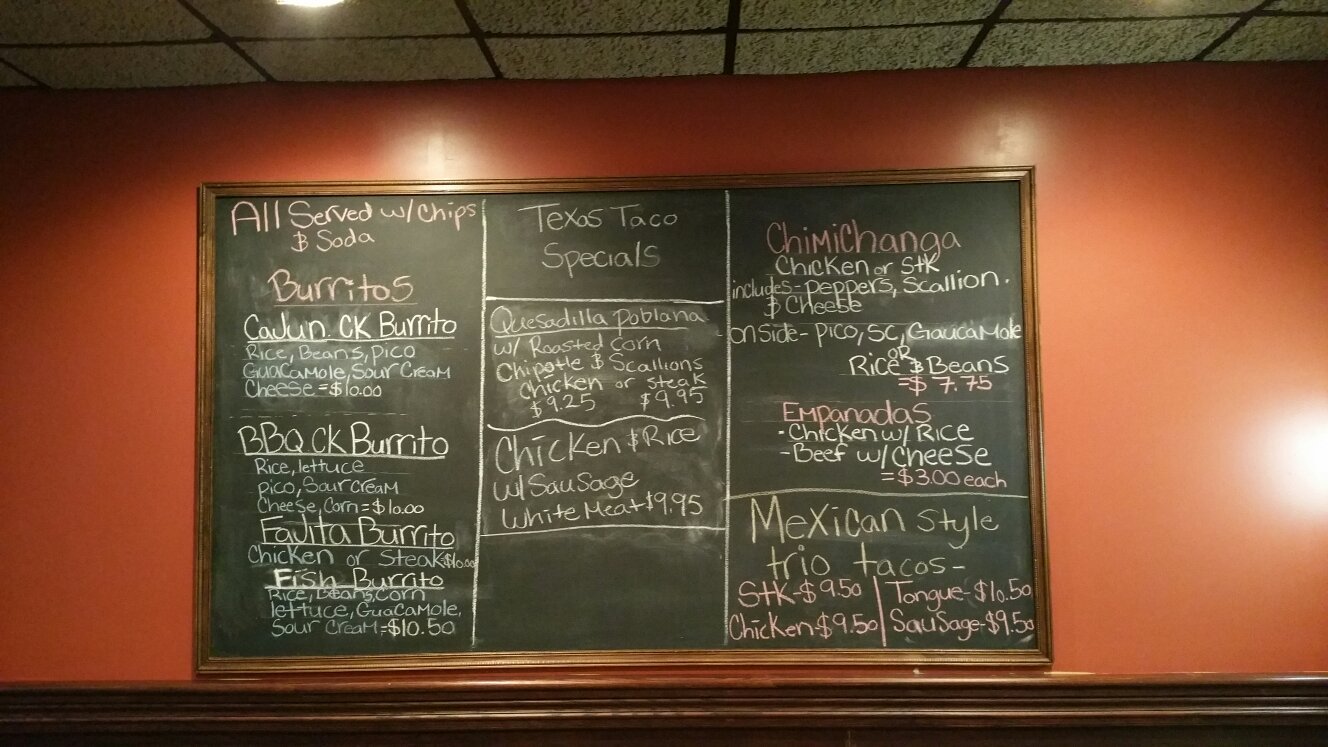 All Served w/chips
& Soda
Burritos
Cajun CK Burrito
Rice, Beans, Pico
Guacamole, Sour Cream
Cheese = $10.00
BBQ CK Burrito
Rice, lettuce
pico, Sour cream
Cheese, Corn = $10.00
Fajita Burrito
Chicken or Steak $10.00
Fish Burrito
Rice, Beans, corn
lettuce, Guacamole,
Sour Cream = $10.50
Texas Taco
Specials
Quesadilla poblana
w/ Roasted corn
Chipotle & Scallions
Chicken or steak
$9.25 $9.95
Chicken & Rice
w/ Sausage
White Meat $9.95
Chimichanga
Chicken or Stk
includes - peppers, Scallion.
& Cheese
onside - pico, SC, Gaucamole
OR
Rice & Beans
= $7.75
Empanadas
- Chicken w/ Rice
- Beef w/ cheese
= $3.00 each
Mexican style
trio tacos -
Stk - $9.50 Tongue - $10.50
Chicken - $9.50 Sausage - $9.50